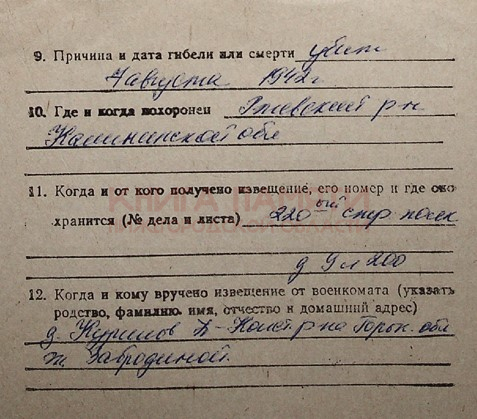 9. Причина и дата гибели или смерти убит
7 августа 1942 г
10. Где и когда похоронен Ржевский р-н
Калининской обл
КНИГА ПАМЯТИ
НИЖЕГОРОДСКОЙ ОБЛАСТИ
11. Когда и от кого получено извещение, его номер и где оно
хранится (№ дела и листа) 220 ый стр полк
д 9 л 200
12. Когда и кому вручено извещение от военкомата (указать
родство, фамилию, имя, отчество и домашний адрес)
д. Курилов Б-Конст. р-на Горьк. обл
ж. Забродиной